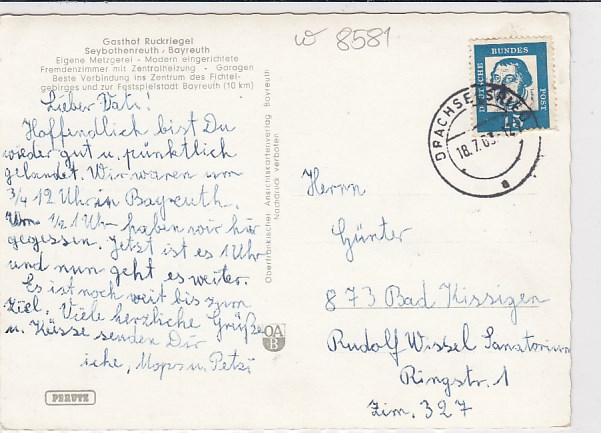 Gasthof Ruckriegel
Seybothenreuth, Bayreuth
Eigene Metzgerei - Modern eingerichtete
Fremdenzimmer mit Zentralheizung - Garagen
Beste Verbindung ins Zentrum des Fichtel-
gebirges und zur Festspielstadt Bayreuth (10 km)
Lieber Vati!
Hoffendlich bist Du
wieder gut u. pünktlich
gelandet. Wir waren um
3/4 12 Uhr in Bayreuth.
Um 1/2 1 Uhr haben wir hier
gegessen. Jetzt ist es 1 Uhr
und nun geht es weiter.
Es ist noch weit bis zum
Ziel. Viele herzliche Grüße
u. Küsse senden Dir
Mops u. Petzi
PERUTZ
Oberfränkischer Ansichtskartenverlag Bayreuth
Nachdruck verboten
OA
B
W 8581
DEUTSCHE
BUNDES
POST
15
DRACHSELSRIED
18.7.63
a
Herrn
Günter
873 Bad Kissigen
Rudolf Wissel Sanatorium
Ringstr. 1
Zim. 327